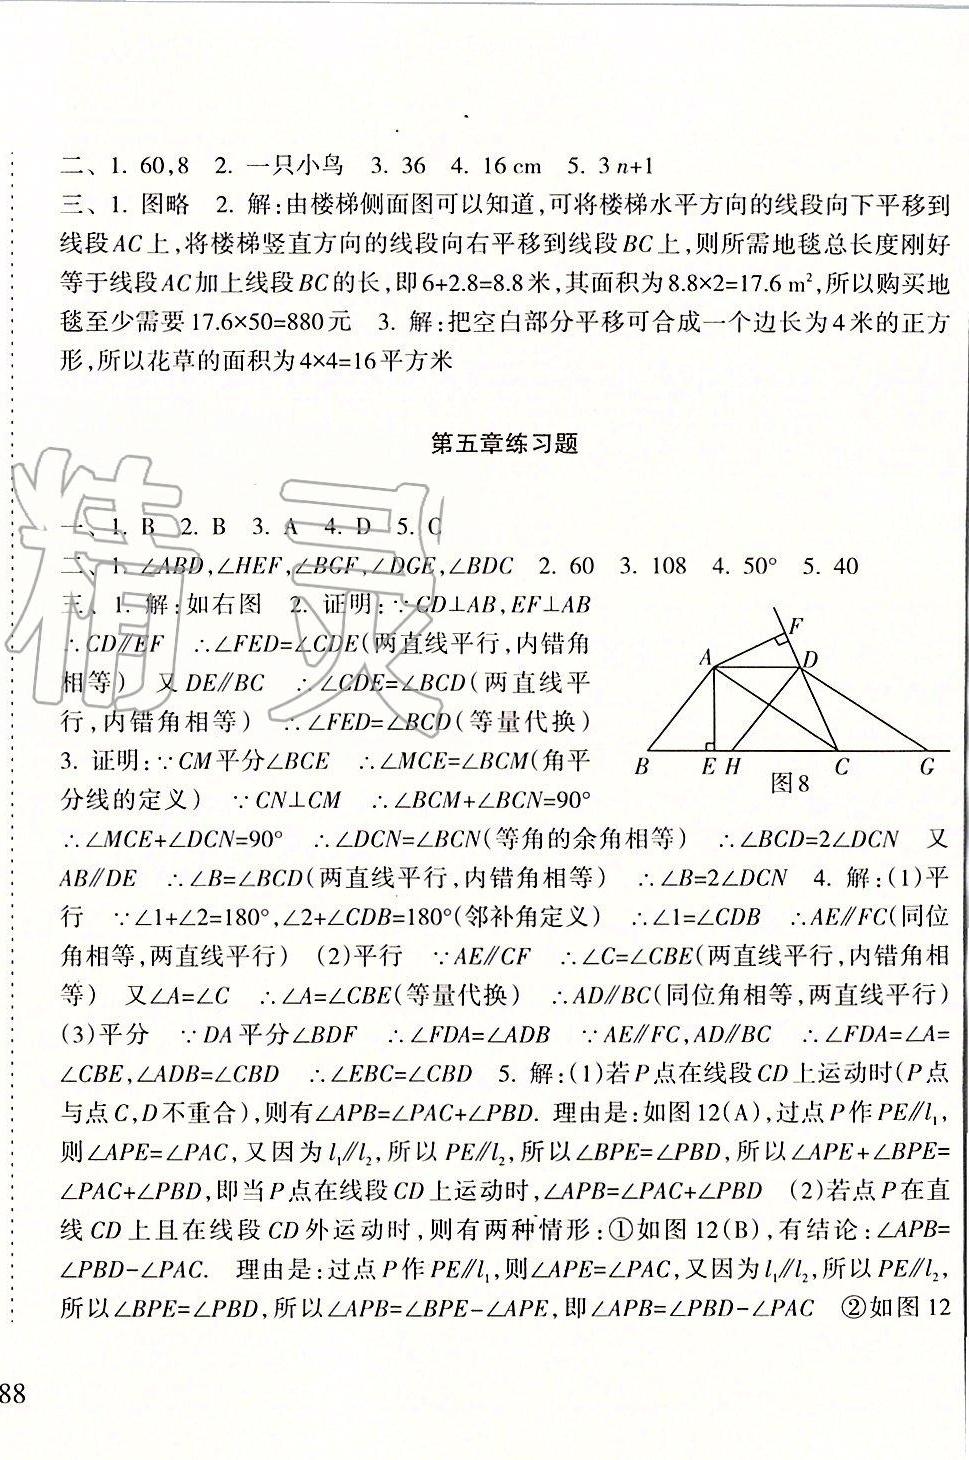 二、1. 60,8  2. 一只小鸟  3. 36  4. 16 cm  5. 3 n+1
三、1. 图略  2. 解:由楼梯侧面图可以知道,可将楼梯水平方向的线段向下平移到
线段AC上,将楼梯竖直方向的线段向右平移到线段BC上,则所需地毯总长度刚好
等于线段AC加上线段BC的长,即6+2.8=8.8米,其面积为8.8×2=17.6 m²,所以购买地
毯至少需要17.6×50=880元  3. 解:把空白部分平移可合成一个边长为4米的正方
形,所以花草的面积为4×4=16平方米
第五章练习题
一、1. B  2. B  3. A  4. D  5. C
二、1. ∠ABD,∠HEF,∠BGF,∠DGE,∠BDC  2. 60  3. 108  4. 50°  5. 40
三、1. 解:如右图  2. 证明:∵CD⊥AB,EF⊥AB
∴CD∥EF  ∴∠FED=∠CDE(两直线平行,内错角
相等)  又DE∥BC  ∴∠CDE=∠BCD(两直线平
行,内错角相等)  ∴∠FED=∠BCD(等量代换)
3. 证明:∵CM平分∠BCE  ∴∠MCE=∠BCM(角平
分线的定义)  ∵CN⊥CM  ∴∠BCM+∠BCN=90°
F
A
D
B
E
H
C
G
图8
∴∠MCE+∠DCN=90°  ∴∠DCN=∠BCN(等角的余角相等)  ∴∠BCD=2∠DCN  又
AB∥DE  ∴∠B=∠BCD(两直线平行,内错角相等)  ∴∠B=2∠DCN  4. 解:(1)平
行  ∵∠1+∠2=180°,∠2+∠CDB=180°(邻补角定义)  ∴∠1=∠CDB  ∴AE∥FC(同位
角相等,两直线平行)  (2)平行  ∵AE∥CF  ∴∠C=∠CBE(两直线平行,内错角相
等)  又∠A=∠C  ∴∠A=∠CBE(等量代换)  ∴AD∥BC(同位角相等,两直线平行)
(3)平分  ∵DA平分∠BDF  ∴∠FDA=∠ADB  ∵AE∥FC,AD∥BC  ∴∠FDA=∠A=
∠CBE,∠ADB=∠CBD  ∴∠EBC=∠CBD  5. 解:(1)若P点在线段CD上运动时(P点
与点C,D不重合),则有∠APB=∠PAC+∠PBD. 理由是:如图12(A),过点P作PE∥l₁,
则∠APE=∠PAC,又因为l₁∥l₂,所以PE∥l₂,所以∠BPE=∠PBD,所以∠APE+∠BPE=
∠PAC+∠PBD,即当P点在线段CD上运动时,∠APB=∠PAC+∠PBD  (2)若点P在直
线CD上且在线段CD外运动时,则有两种情形:①如图12(B),有结论:∠APB=
∠PBD-∠PAC.  理由是:过点P作PE∥l₁,则∠APE=∠PAC,又因为l₁∥l₂,所以PE∥l₂,
所以∠BPE=∠PBD,所以∠APB=∠BPE-∠APE,即∠APB=∠PBD-∠PAC  ②如图12
88
精灵